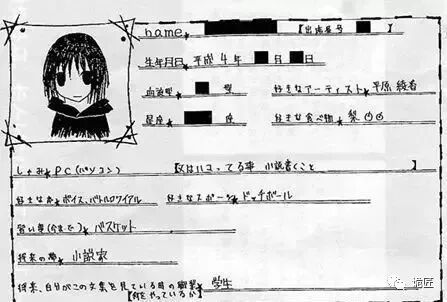 name 【出席番号 】
生年月日 平成4年 月 日
血液型 型 好きなアーティスト 平原綾香
星座 座 好きな食べ物 梨
しゅみ PC(パソコン) 【又はハマってる事 小説書くこと】
好きな本 ボイス、バトルロワイアル 好きなスポーツ ドッチボール
習い事(今まで) バスケット
将来の夢 小説家
将来、自分がこの文集を見ている時の職業 学生
【何をやっているか】